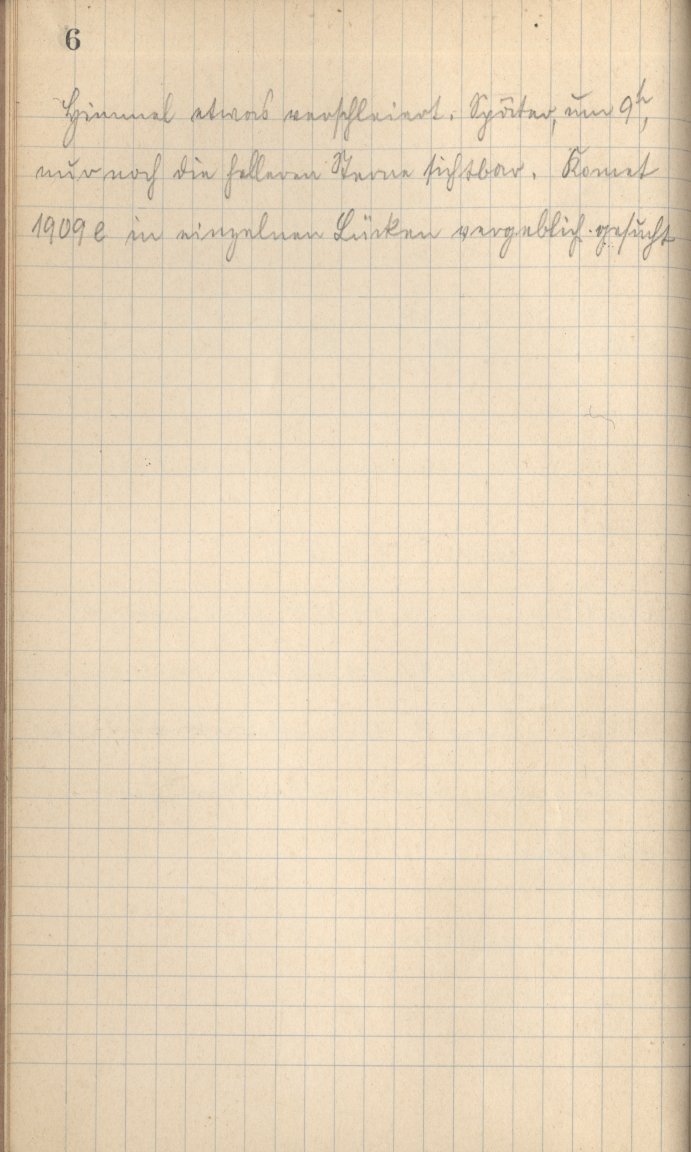 6
Himmel etwas verschleiert. Später, um 9h,
nur noch die helleren Sterne sichtbar. Komet
1909 e in einzelnen Lücken vergeblich gesucht